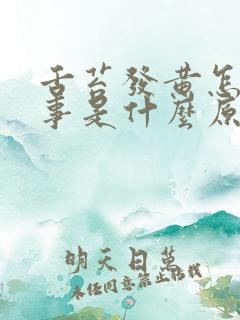 舌苔發黃怎
事是什麼原
明天日萬
未经同意禁止转载